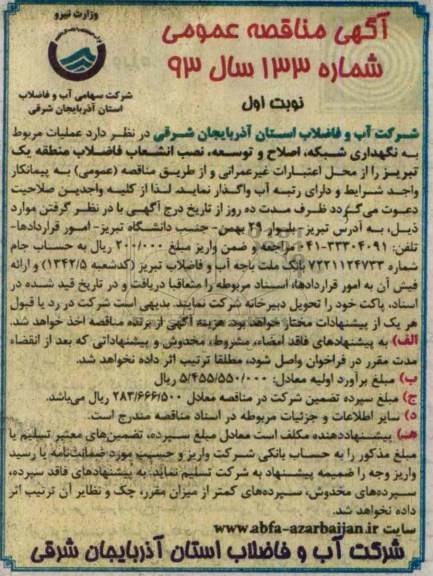 وزارت نیرو
شرکت سهامی آب و فاضلاب
استان آذربایجان شرقی
آگهی مناقصه عمومی
شماره ۱۳۳ سال ۹۳
نوبت اول
شرکت آب و فاضلاب استان آذربایجان شرقی در نظر دارد عملیات مربوط
به نگهداری شبکه، اصلاح و توسعه، نصب انشعاب فاضلاب منطقه یک
تبریز را از محل اعتبارات غیرعمرانی و از طریق مناقصه (عمومی) به پیمانکار
واجد شرایط و دارای رتبه آب واگذار نماید. لذا از کلیه واجدین صلاحیت
دعوت می‌گردد ظرف مدت ده روز از تاریخ درج آگهی با در نظر گرفتن موارد
ذیل، به آدرس تبریز- بلوار ۲۹ بهمن- جنب دانشگاه تبریز- امور قراردادها-
تلفن: ۳۳۳۰۴۰۹۱-۰۴۱ مراجعه و ضمن واریز مبلغ ۲۰۰/۰۰۰ ریال به حساب جام
شماره ۷۳۲۱۱۲۴۷۳۳ بانک ملت باجه آب و فاضلاب تبریز (کدشعبه ۱۳۴۲/۵) و ارائه
فیش آن به امور قراردادها، اسناد مربوطه را متعاقبا دریافت و در تاریخ قید شده در
اسناد، پاکت خود را تحویل دبیرخانه شرکت نمایند. بدیهی است شرکت در رد یا قبول
هر یک از پیشنهادات مختار خواهد بود. هزینه آگهی از برنده مناقصه اخذ خواهد شد.
الف) به پیشنهادهای فاقد امضاء، مشروط، مخدوش و پیشنهاداتی که بعد از انقضاء
مدت مقرر در فراخوان واصل شود، مطلقا ترتیب اثر داده نخواهد شد.
ب) مبلغ برآورد اولیه معادل: ۵/۴۵۵/۵۵۰/۰۰۰ ریال
ج) مبلغ سپرده تضمین شرکت در مناقصه معادل ۲۸۳/۶۶۶/۵۰۰ ریال می‌باشد.
د) سایر اطلاعات و جزئیات مربوطه در اسناد مناقصه مندرج است.
هـ) پیشنهاددهنده مکلف است معادل مبلغ سپرده، تضمین‌های معتبر تسلیم یا
مبلغ مذکور را به حساب بانکی شرکت واریز و حسب مورد ضمانت‌نامه یا رسید
واریز وجه را ضمیمه پیشنهاد به شرکت تسلیم نماید. به پیشنهادهای فاقد سپرده،
سپرده‌های مخدوش، سپرده‌های کمتر از میزان مقرر، چک و نظایر آن ترتیب اثر
داده نخواهد شد.
سایت www.abfa-azarbaijan.ir
شرکت آب و فاضلاب استان آذربایجان شرقی